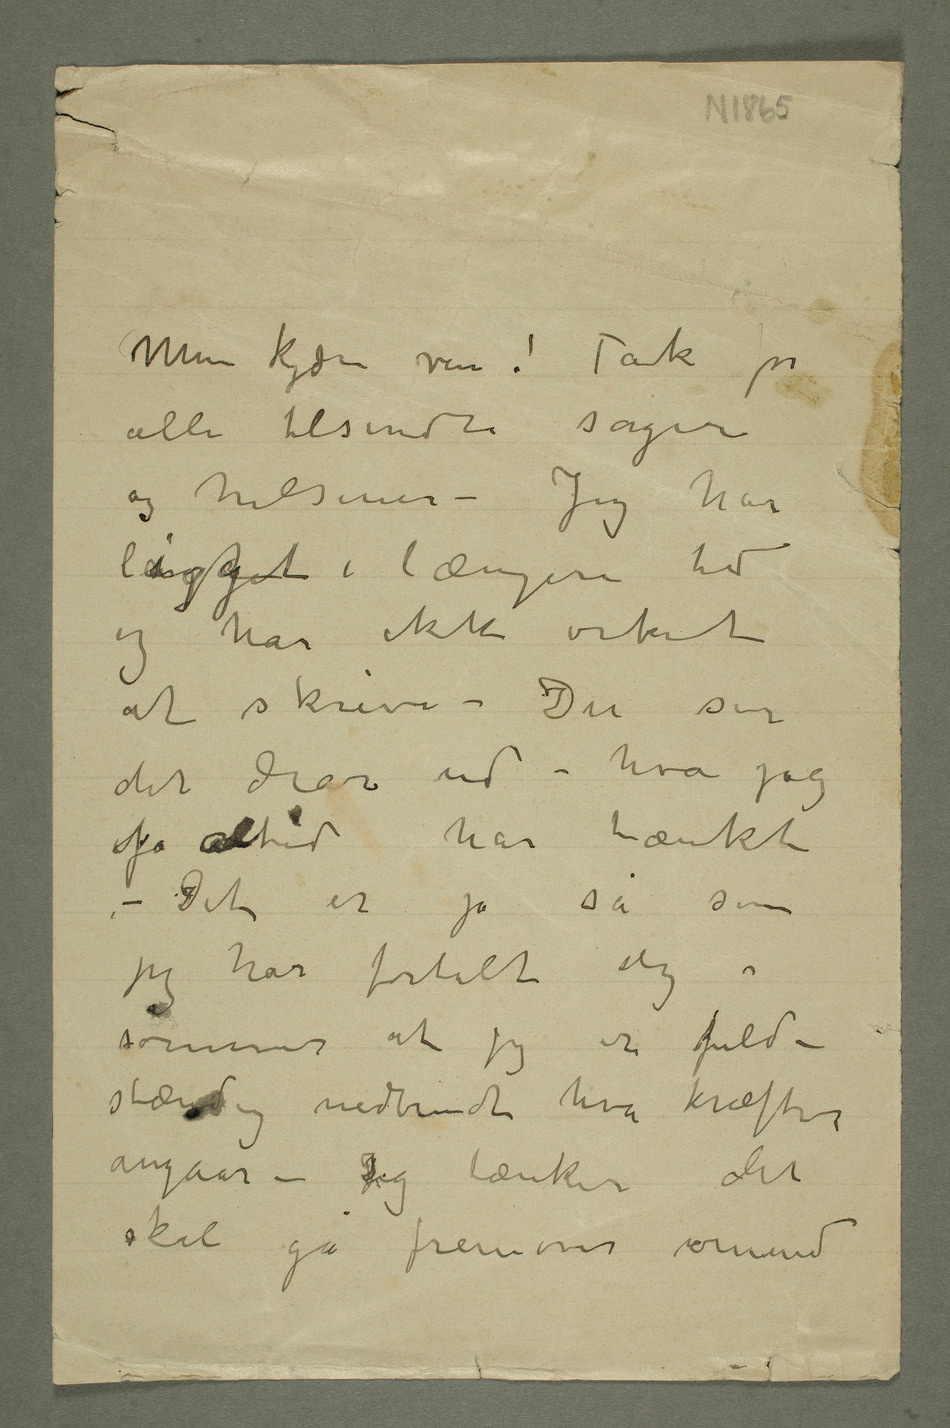 N1865
Min kjære ven! Tak for
alle tilsendte sager
og hilsener – Jeg har
ligget i længere tid
og har ikke orket
at skrive – Du ser
det drar ud – hva jeg
jo altid har tænkt
– Det er jo så som
jeg har fortalt dig i
sommer at jeg er fuld-
stændig nedbrudt hva kræfter
angaar – Jeg tænker det
skal gå fremover omend